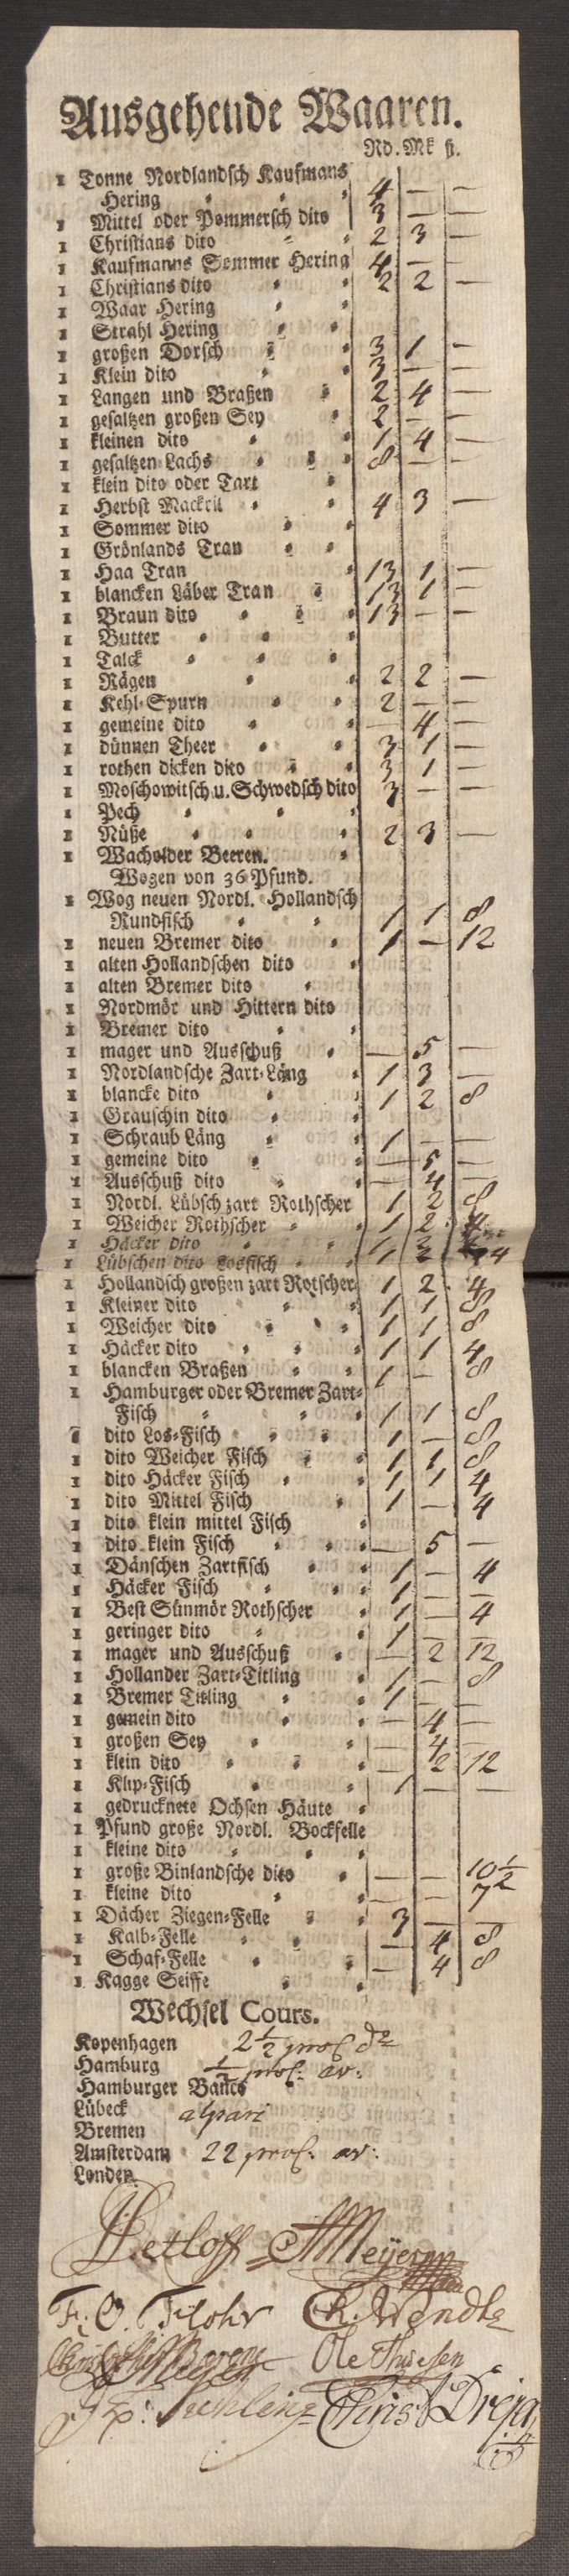 Ausgehende Waaren.
Rd. Mk ß.
1 Tonne Nordlandsch Kaufmans
Hering 4 — —
1 Mittel oder Pommersch dito 3 — —
1 Christians dito 2 3 —
1 Kaufmanns Sommer Hering 4 — —
1 Christians dito 2 2 —
1 Waar Hering
1 Strahl Hering
1 großen Dorsch 3 1 —
1 Klein dito 3 — —
1 Langen und Braßen 2 4 —
1 gesaltzen großen Sey 2 — —
1 kleinen dito 1 4 —
1 gesaltzen Lachs 8 — —
1 klein dito oder Tart
1 Herbst Mackril 4 3 —
1 Sommer dito
1 Grönlands Tran
1 Haa Tran 13 1 —
1 blancken Läber Tran 13 1 —
1 Braun dito 13 — —
1 Butter
1 Talck
1 Rägen 2 2 —
1 Kehl-Spurn 2 — —
1 gemeine dito — 4 —
1 dünnen Theer 3 1 —
1 rothen dicken dito 3 1 —
1 Moschowitsch u. Schwedsch dito 3 — —
1 Pech
1 Nüße 2 3 —
1 Wacholder Beeren.
Wogen von 36 Pfund.
1 Wog neuen Nordl. Hollandsch
Rundfisch 1 1 8
1 neuen Bremer dito 1 — 12
1 alten Hollandschen dito
1 alten Bremer dito
1 Nordmör und Hittern dito
1 Bremer dito
1 mager und Ausschuß — 5 —
1 Nordlandsche Zart-Läng 1 3 —
1 blancke dito 1 2 8
1 Grauschin dito
1 Schraub Läng 1 — —
1 gemeine dito — 5 —
1 Ausschuß dito — 4 —
1 Nordl. Lübsch zart Rothscher 1 2 8
1 Weicher Rothscher 1 2 4
1 Häcker dito 1
1 Lübschen dito Losfisch 1 2 4
1 Hollandsch großen zart Rotscher 1 2 4
1 Kleiner dito 1 1 8
1 Weicher dito 1 1 8
1 Häcker dito 1 1 4
1 blancken Braßen 1 — 8
1 Hamburger oder Bremer Zart-
Fisch 1 1 8
1 dito Los-Fisch 1 — 8
1 dito Weicher Fisch 1 1 8
1 dito Häcker Fisch 1 1 4
1 dito Mittel Fisch 1 — 4
1 dito klein mittel Fisch
1 dito klein Fisch — 5 —
1 Dänschen Zartfisch 1 — 4
1 Häcker Fisch 1 — —
1 Best Sünmör Rothscher 1 — 4
1 geringer dito 1 — —
1 mager und Ausschuß — 2 12
1 Hollander Zart-Titling 1 — 8
1 Bremer Titling 1 — —
1 gemein dito — 4 —
1 großen Sey — 4 —
1 klein dito — 2 12
1 Klip-Fisch 1 — —
1 gedrucknete Ochsen Häute
1 Pfund große Nordl. Bockfelle
1 kleine dito
1 große Binlandsche dito — — 10½
1 kleine dito — — 7
1 Dächer Ziegen-Felle 3 — —
1 Kalb-Felle — 4 8
1 Schaf-Felle — 4 8
1 Kagge Seiffe
Wechsel Cours.
Kopenhagen 2½
Hamburg ½
Hamburger Banco
Lübeck alpari
Bremen
Amsterdam 22
Londen
Detloff Meyer
F. O. Flohr Ch. Wendt
Ole Thuesen
Christ Dreja